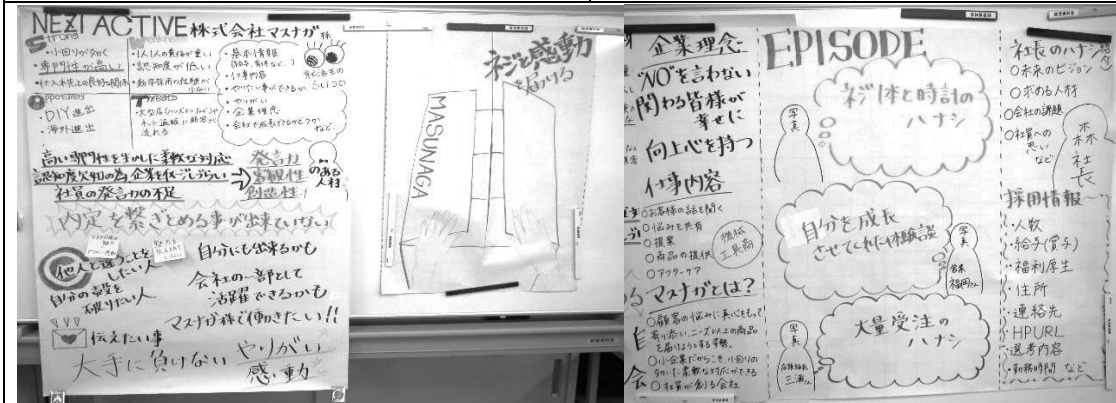 NEXT ACTIVE 株式会社マスナガ様
Strong
・小回りが効く
・専門性が高い
・仕入れ先との良好な関係
Weakness
・1人1人の責任が重い
・認知度が低い
・新卒採用の経験が少ない
Opportunity
・DIY進出
・海外進出
Threats
・大型店
ネット通販に顧客が流れる
・基本情報
・仕事内容
・やりたい事ができるか
・やりがい
・企業理念
・会社で成長できるかどうか
など
就活生の
高い専門性を生かした柔軟な対応
認知度欠如の為、企業を
社員の発言力の不足
発言力
客観性
創造性
のある人材
内定を繋ぎとめる事が出来ていない
他人と違うことをしたい人
自分の殻を破りたい人
自分にも出来るかも
会社の一部として
活躍できるかも
マスナガ様で働きたい!!
伝えたい事
大手に負けない やりがい
感動
ネジと感動
を届ける
MASUNAGA
企業理念
"NO"を言わない
関わる皆様が
幸せに
向上心を持つ
仕事内容
○お客様の話を聞く
○悩みを共有
○提案
○商品の提供
○アフターケア
機械
工具商
マスナガとは?
○顧客の悩みに真心をもって
寄り添い、ニーズ以上の商品
を届けようとする姿勢。
○小企業だからこそ、小回りの
効いた柔軟な対応ができる
○社員が創る会社
EPISODE
写真
ネジ1本と時計の
ハナシ
自分を成長
させてくれた体験談
写真
営業
福岡さん
写真
三浦さん
大量受注の
ハナシ
社長のハナシ
○未来のビジョン
○求める人材
○会社の課題
○社員への
思い
など
森社長
採用情報
・人数
・給与(賞与)
・福利厚生
・住所
・連絡先
・HPURL
・選考内容
・勤務時間 など